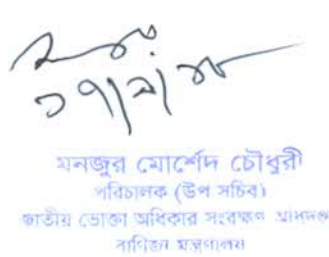 মনজুর মোর্শেদ চৌধুরী
পরিচালক (উপ সচিব)
জাতীয় ভোক্তা অধিকার সংরক্ষণ অধিদপ্তর
বাণিজ্য মন্ত্রণালয়